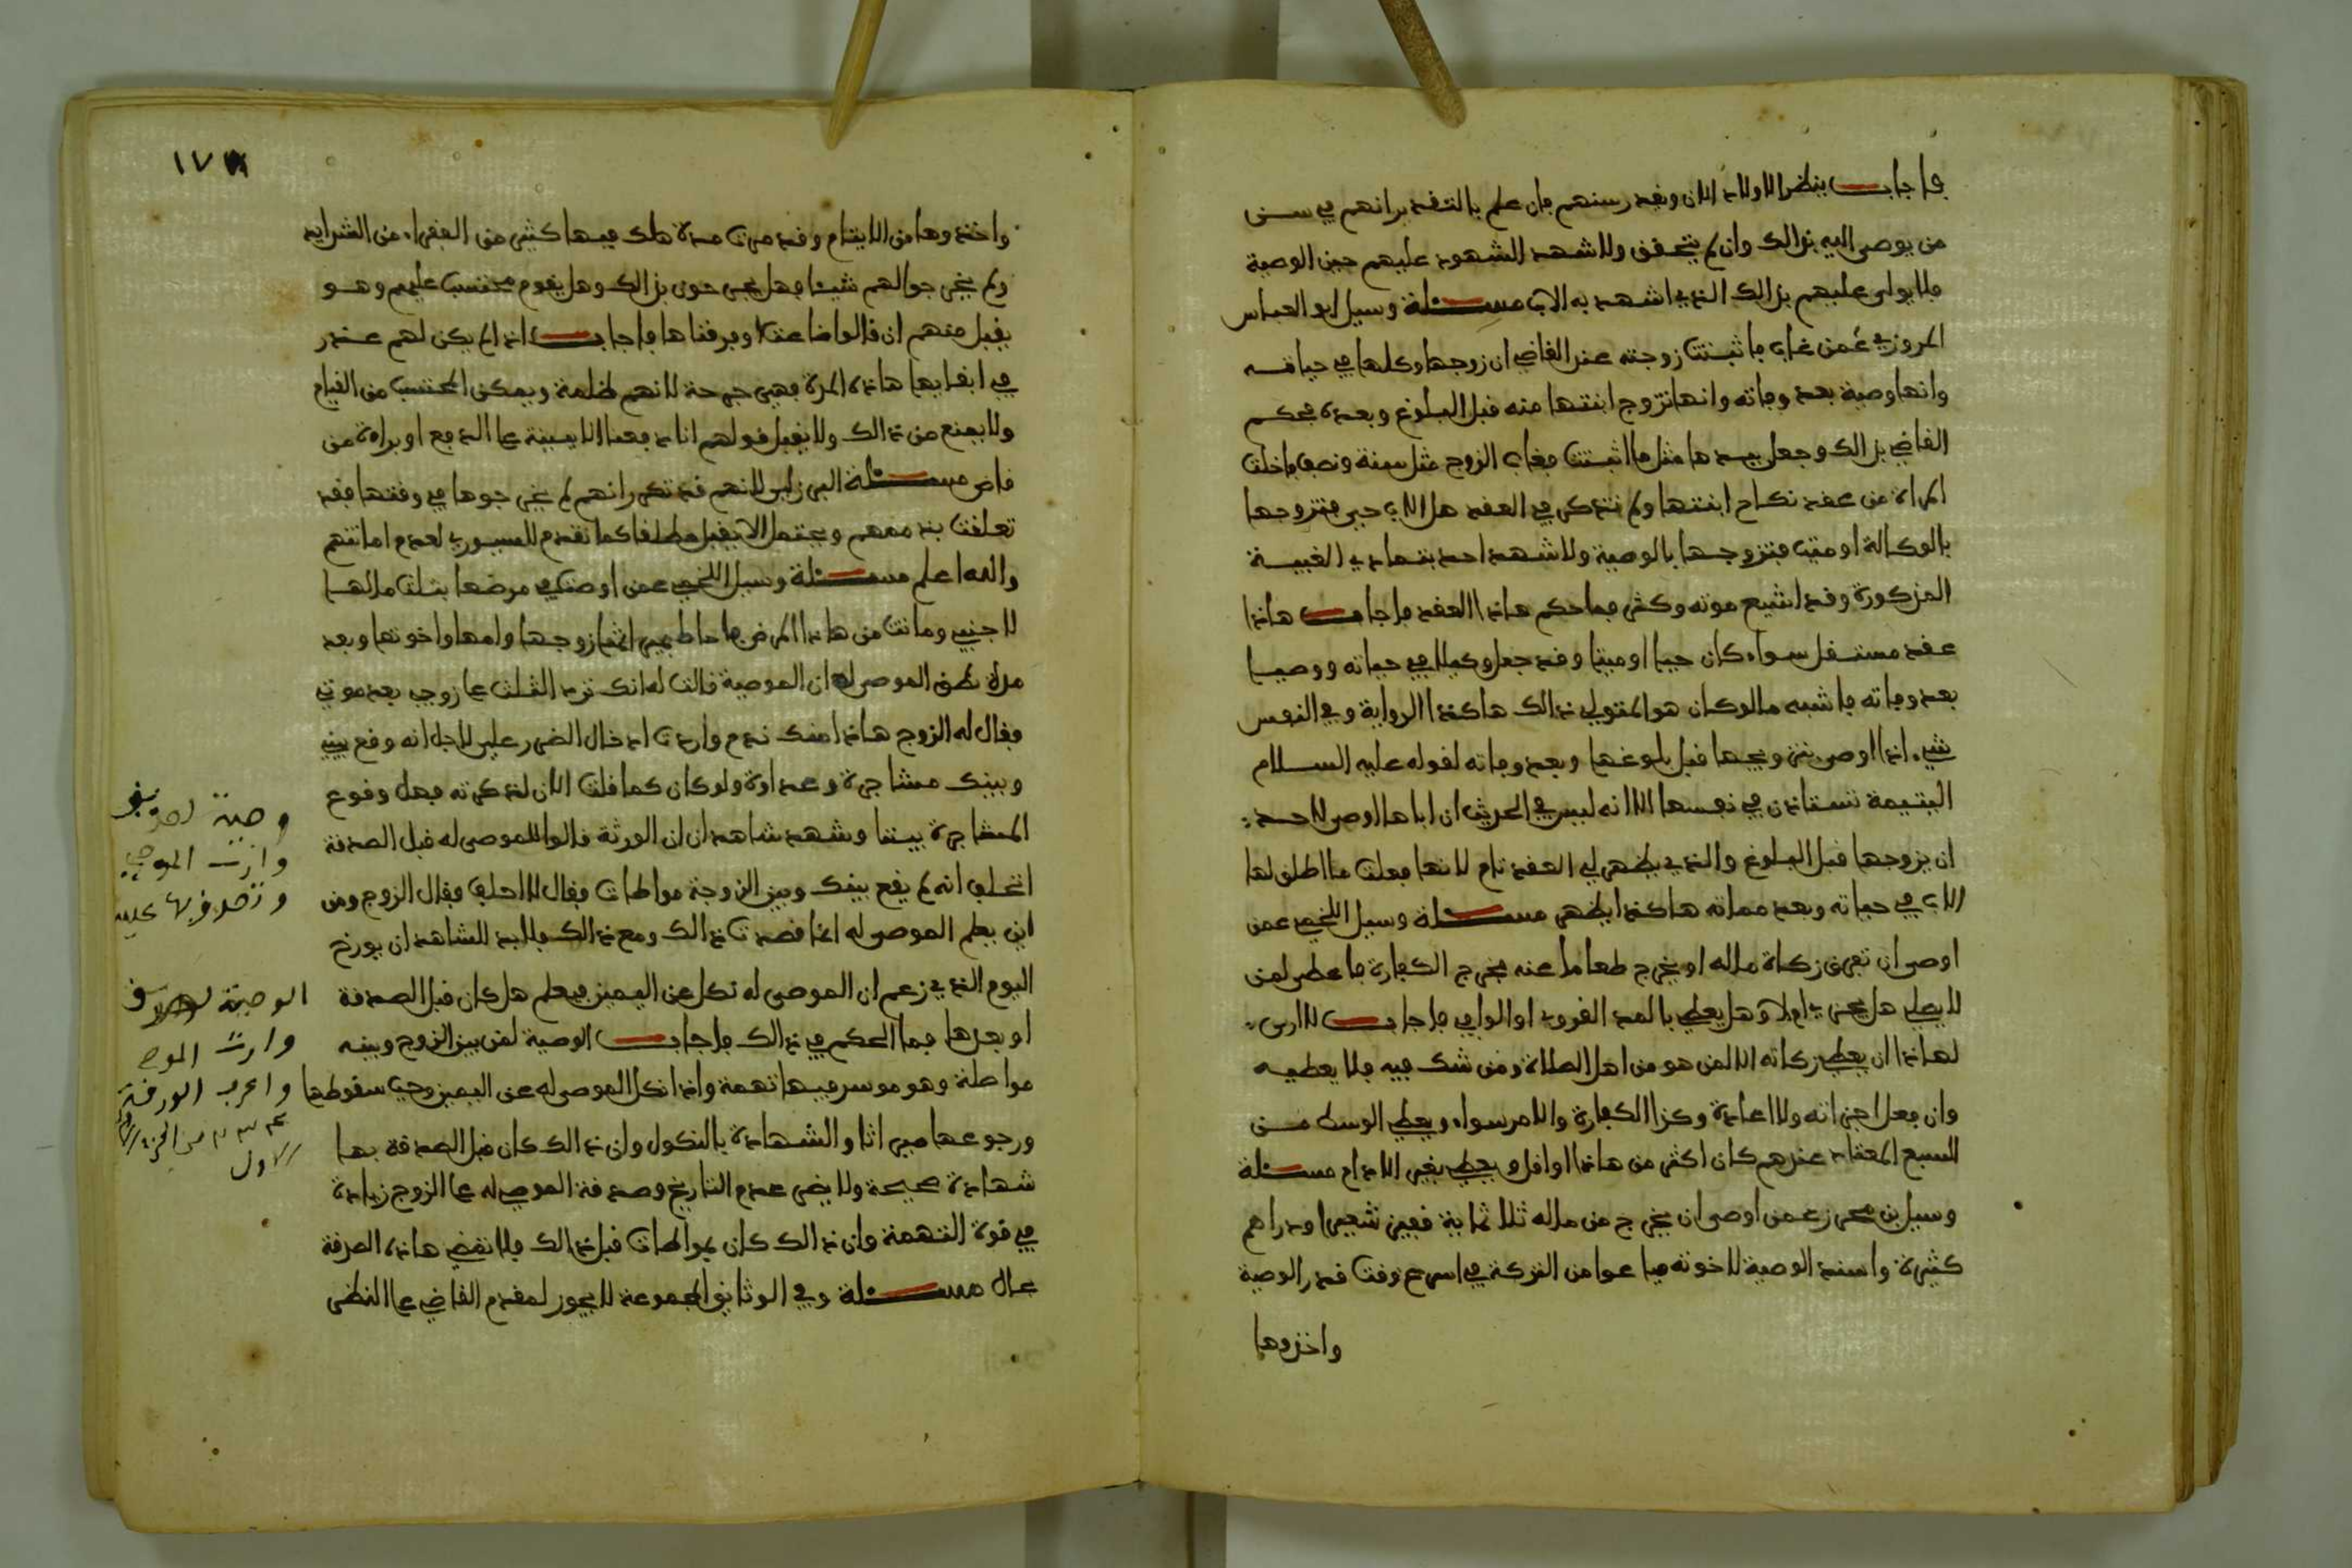 فاجاب ينظر الاولاد الان ويعد رسنهم فان علم بالتقدير انهم في سن
من يوصى اليه بذالك وان لم يتحقق ولا شهد الشهود عليهم حين الوصية
فلا يولى عليهم بذالك الذي اشهد به الاب مسئلة وسيل ابو العباس
المروزي عمن غاب فاثبتت زوجته عند القاضي ان زوجها وكلها في حياته
وانها وصية بعد وفاته وانها تزوج ابنتها منه قبل البلوغ وبعده فحكم
القاضي بذالك وجعل بيدها مثل ما اثبتت فغاب الزوج مثل سنة ونصف فاخلت
المراة من عقد نكاح ابنتها ولم تتذكر في العقد هل الاب حي فتزوجها
بالوكالة او ميت فتزوجها بالوصية ولا شهد احد بتمادي الغيبة
المذكورة وقد اشيع موته وكثر فما حكم هاذا العقد فاجاب هاذا
عقد مستقل سواء كان حيا او ميتا وقد جعل وكيلا في حياته ووصيا
بعد وفاته فاشبه ما لو كان هو المتولي ذالك هاكذا الرواية وفي النفس
شيء اذا اوصى بتزويجها قبل بلوغها وبعد وفاته لقوله عليه السلام
اليتيمة تستاذن في نفسها الا انه ليس في الحديث ان اباها اوصى لاحد
ان يزوجها قبل البلوغ والذي يظهر لي العقد تام لانها فعلت ما اطلق لها
الاب في حياته وبعد مماته هاكذا يظهر مسئلة وسيل اللخمي عمن
اوصى ان تفرق زكاة ماله او يخرج طعاما عنه يخرج الكفارة فاعطى لمن
لا يصلي هل يجزي ام لا وهل يعطي بالمد القروي او الوافي فاجاب لا ارى
لهاذا ان يعطي زكاته الا لمن هو من اهل الصلاة ومن شك فيه فلا يعطيه
وان فعل اجزاته ولا اعادة وكذا الكفارة والامر سواء ويعطي الوسط من
الشبع المعتاد عندهم كان اكثر من هاذا او اقل ويعطي بغير الادام مسئلة
وسيل بن محرز عمن اوصى ان يخرج من ماله ثلاثماية قفيز شعيرا ودراهم
كثيرة واسند الوصية لاخوته فباعوا من التركة في اسرع وقت قدر الوصية
واخذوها
١٧٨
واخذوها من الايتام وقد مرت مدة هلك فيها كثير من الفقراء من الشدايد
ولم يخرجوا لهم شيئا فهل يجرحون بذالك وهل يقوم محتسب عليهم وهو
يقبل منهم ان قالوا ضاعت او فرقناها فاجاب اذا لم يكن لهم عذر
في ابقايها هاذه المدة فهي جرحة لانهم ظلمة ويمكن المحتسب من القيام
ولا يمنع من ذالك ولا يقبل قولهم انا دفعنا الا ببينة على الدفع او براءة من
قاض مسئلة البرزلي لانهم قد تكرر انهم لم يخرجوها في وقتها فقد
تعلقت بذممهم ويحتمل الا يقبل مطلقا كما تقدم للسيوري لعدم امانتهم
والله اعلم مسئلة وسيل اللخمي عمن اوصت في مرضها بثلث مالها
لاجنبي وماتت من هاذا المرض فاحاط بميراثها زوجها وامها واخوتها وبعد
مدة نطق الموصى له ان الموصية قالت له انك ترد الثلث على زوجي بعد موتي
فقال له الزوج هاذا منك ندم واردت ادخال الضرر علي لاجل انه وقع بيني
وبينك مشاجرة وعداوة ولو كان كما قلت الان لذكرته قبل وقوع
المشاجرة بيننا وشهد شاهدان ان الورثة قالوا للموصى له قبل الصدقة
اتحلف انه لم يقع بينك وبين الزوجة مواطات فقال لا احلف فقال الزوج ومن
اين يعلم الموصى له اذا قصدت ذالك ومع ذالك فلا بد للشاهد ان يورخ
اليوم الذي زعم ان الموصى له نكل عن اليمين فيعلم هل كان قبل الصدقة
او بعدها فما الحكم في ذالك فاجاب الوصية لمن بين الزوج وبينه
مواصلة وهو موسر فيها تهمة واذا نكل الموصى له عن اليمين وجب سقوطها
ورجوعها ميراثا والشهادة بالنكول وان ذالك كان قبل الصدقة بها
شهادة صحيحة ولا يضر عدم التاريخ وصدقة الموصى له على الزوج زيادة
في قوة التهمة وان ذالك كان بمواطات قبل ذالك فلا تمضي هاذه الصدقة
بحال مسئلة وفي الوثايق المجموعة لا يجوز لمقدم القاضي على النظر
وصية
وارث الموصي
وتصدق بها عليه
الوصية
وارث الموصي
الورقة
من الجزء
الاول